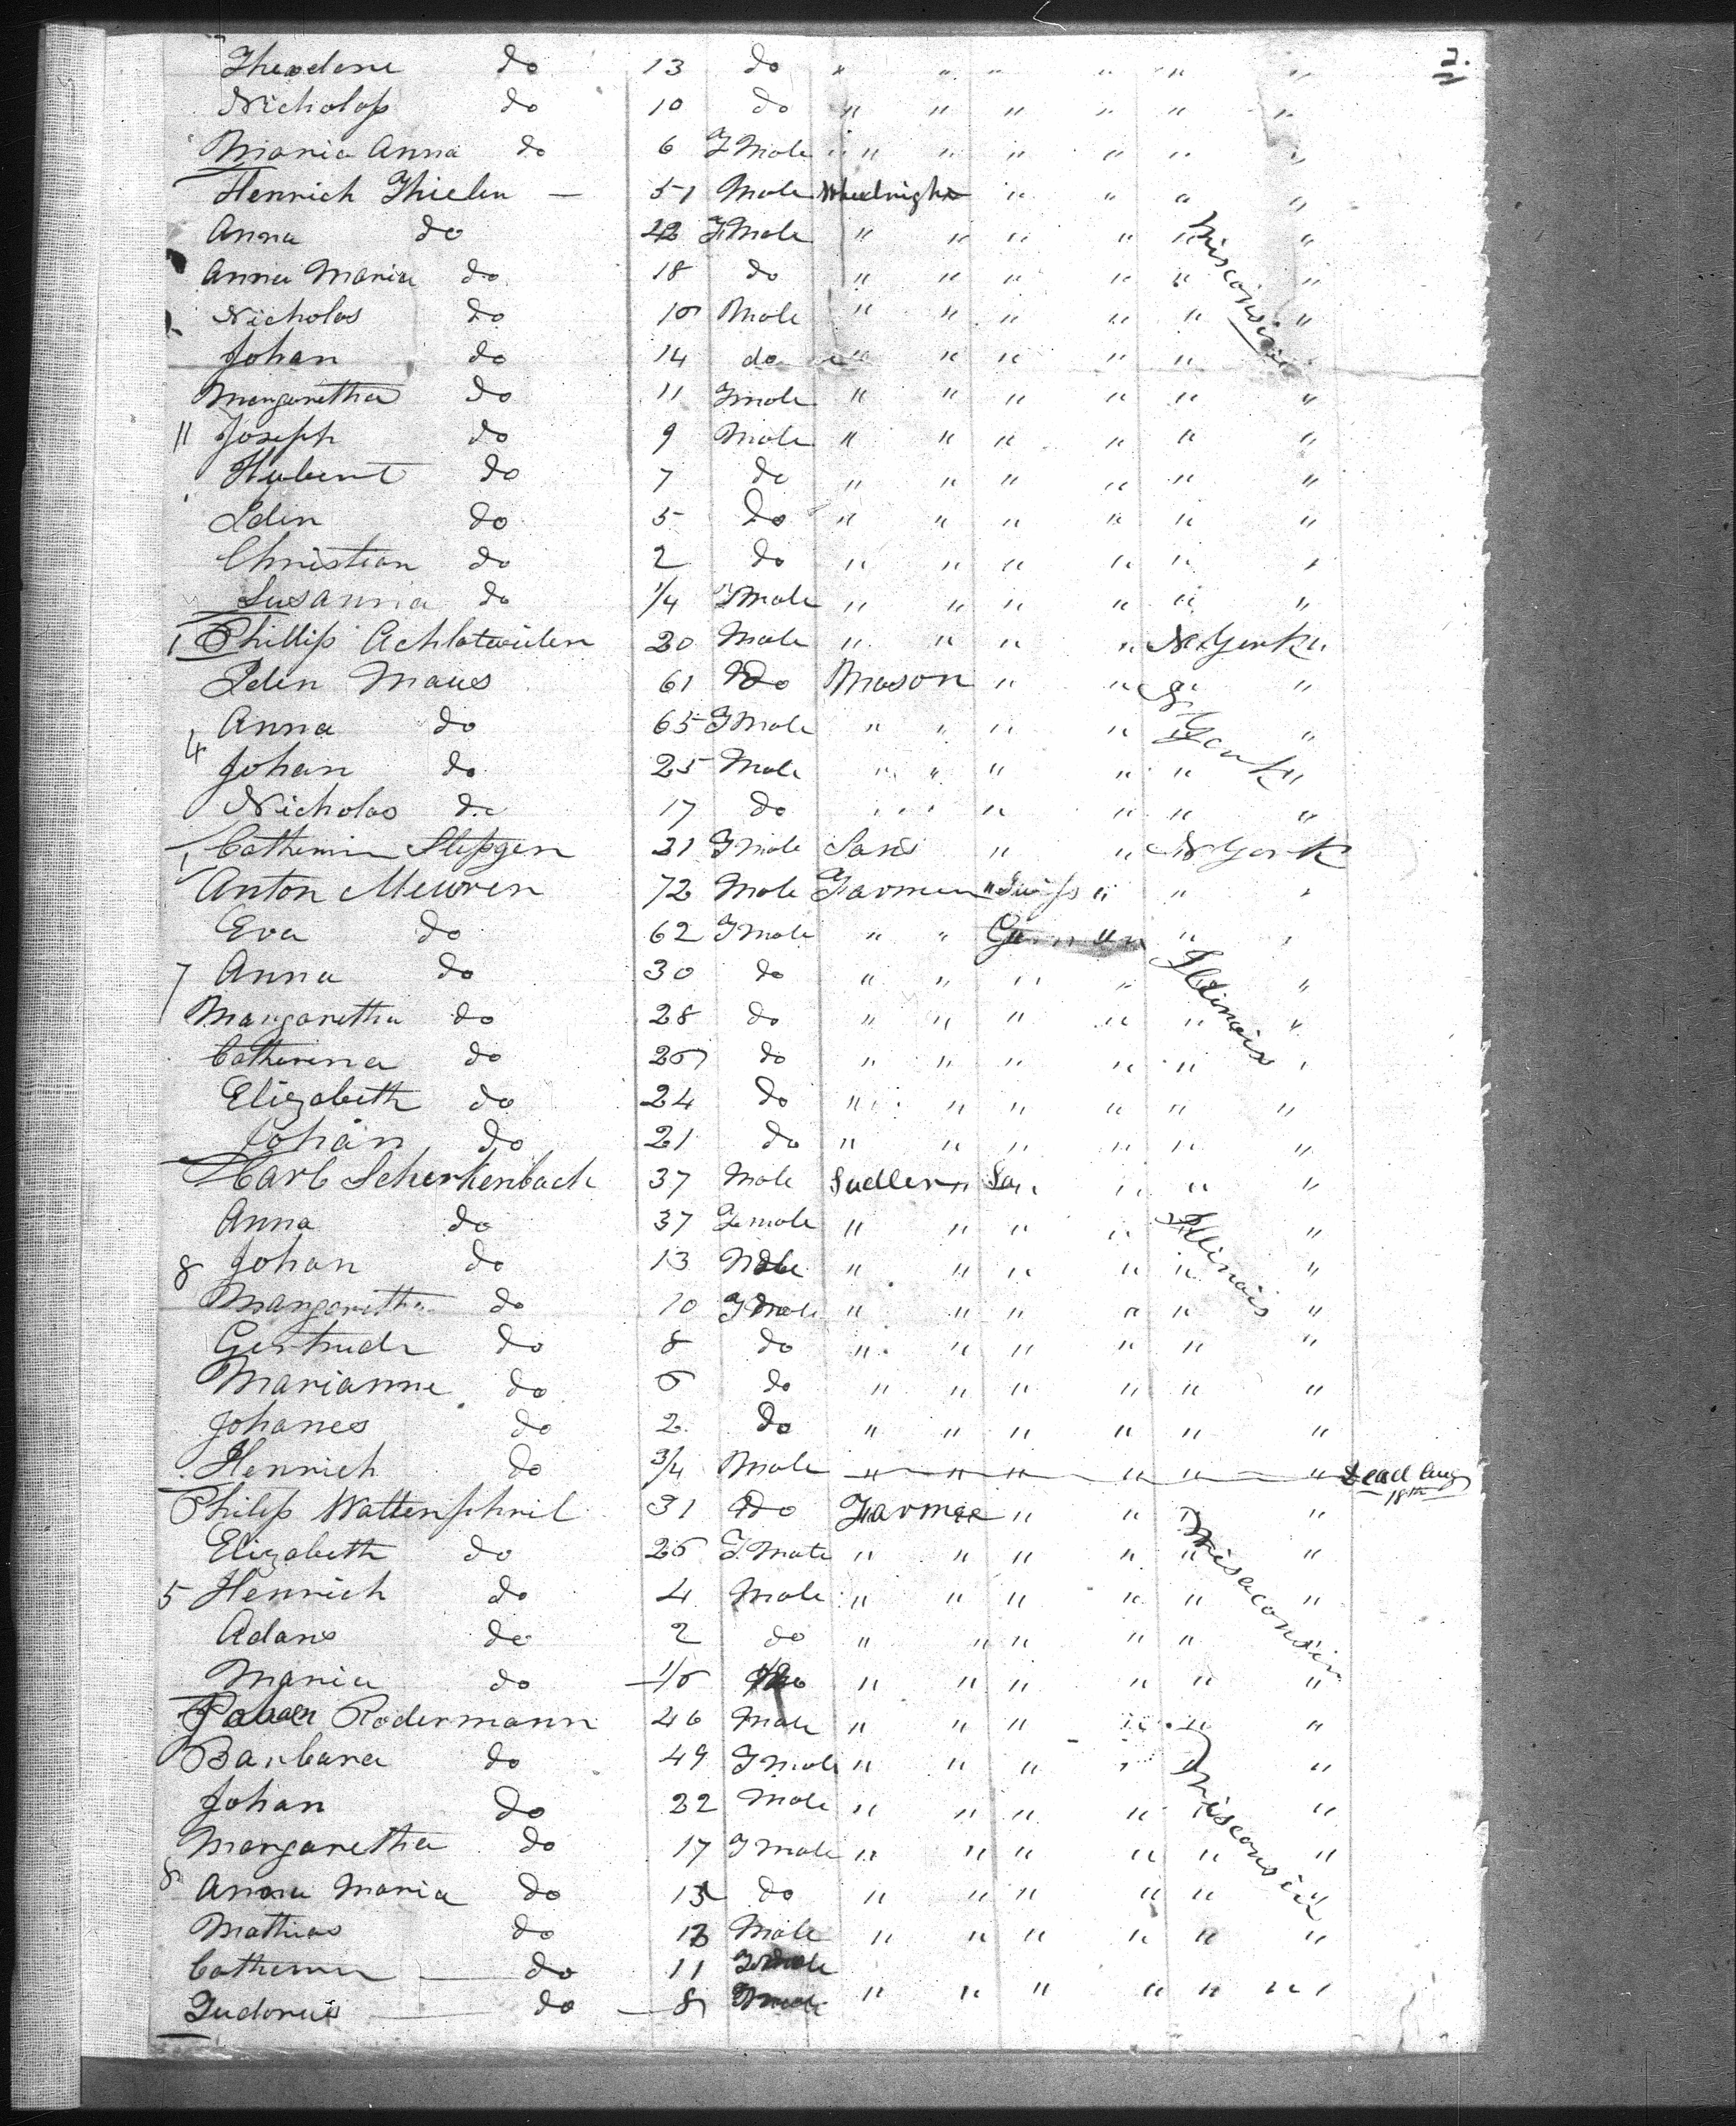 2.
Theodore do 13 do " " " " " "
Nicholass do 10 do " " " " " "
Maria Anna do 6 F Male " " " " " "
Henrich Thielen — 51 Male Wheelright " " " "
Anna do 42 F Male " " " " " "
Anna Maria do 18 do " " " " " "
Wisconsin
Nicholas do 15 Male " " " " " "
Johan do 14 do " " " " " "
Margaretha do 11 Fmale " " " " " "
11 Joseph do 9 Male " " " " " "
Hubert do 7 do " " " " " "
do 5 Do " " " " " "
Christian do 2 do " " " " " "
Susanna do 1/4 F Male " " " " " "
1 Phillip 20 Male " " " " N. York "
Maus 61 Do Mason " " "
4 Anna do 65 F Male " " " " York "
Johan do 25 Male " " " " " "
Nicholas do 17 do " " " " " "
1 Catherina 21 Fmale " " N York
Anton Meuren 72 Male Farmer " Swiss " " "
Eva do 62 Fmale " " German " "
7 Anna do 30 do " " " " Illinois "
Margaretha do 28 do " " " " " "
Catherina do 25 do " " " " " "
Elizabeth do 24 do " " " " " "
Johan do 21 do " " " " " "
Carl Scherkenbach 37 Male Sadler " " " "
Anna do 37 Female " " " " Illinois "
8 Johan do 13 Male " " " " " "
Margaretha do 10 F Male " " " " " "
Gertrude do 8 do " " " " " "
Marianne do 5 do " " " " " "
Johanes do 2 do " " " " " "
Henrich do 3/4 Male " " " " " " Dead Aug 18th
Philip 31 do Farmer " " "
Elizabeth do 25 F. Male " " " " " "
Wisaconsin
5 Henrich do 4 Male " " " " " "
Adam do 2 do " " " " " "
Maria do 1/5 " " " " " "
Rodermann 46 Male " " " " " "
Barbara do 49 F Male " " " " "
Wisconsin
Johan do 22 Male " " " " " "
Margaretha do 17 F male " " " " " "
8 Anna Maria do 15 do " " " " " "
Mathias do 13 Male " " " " " "
Catherina — do 11 Fmale
— do — 8 " " " " " " "